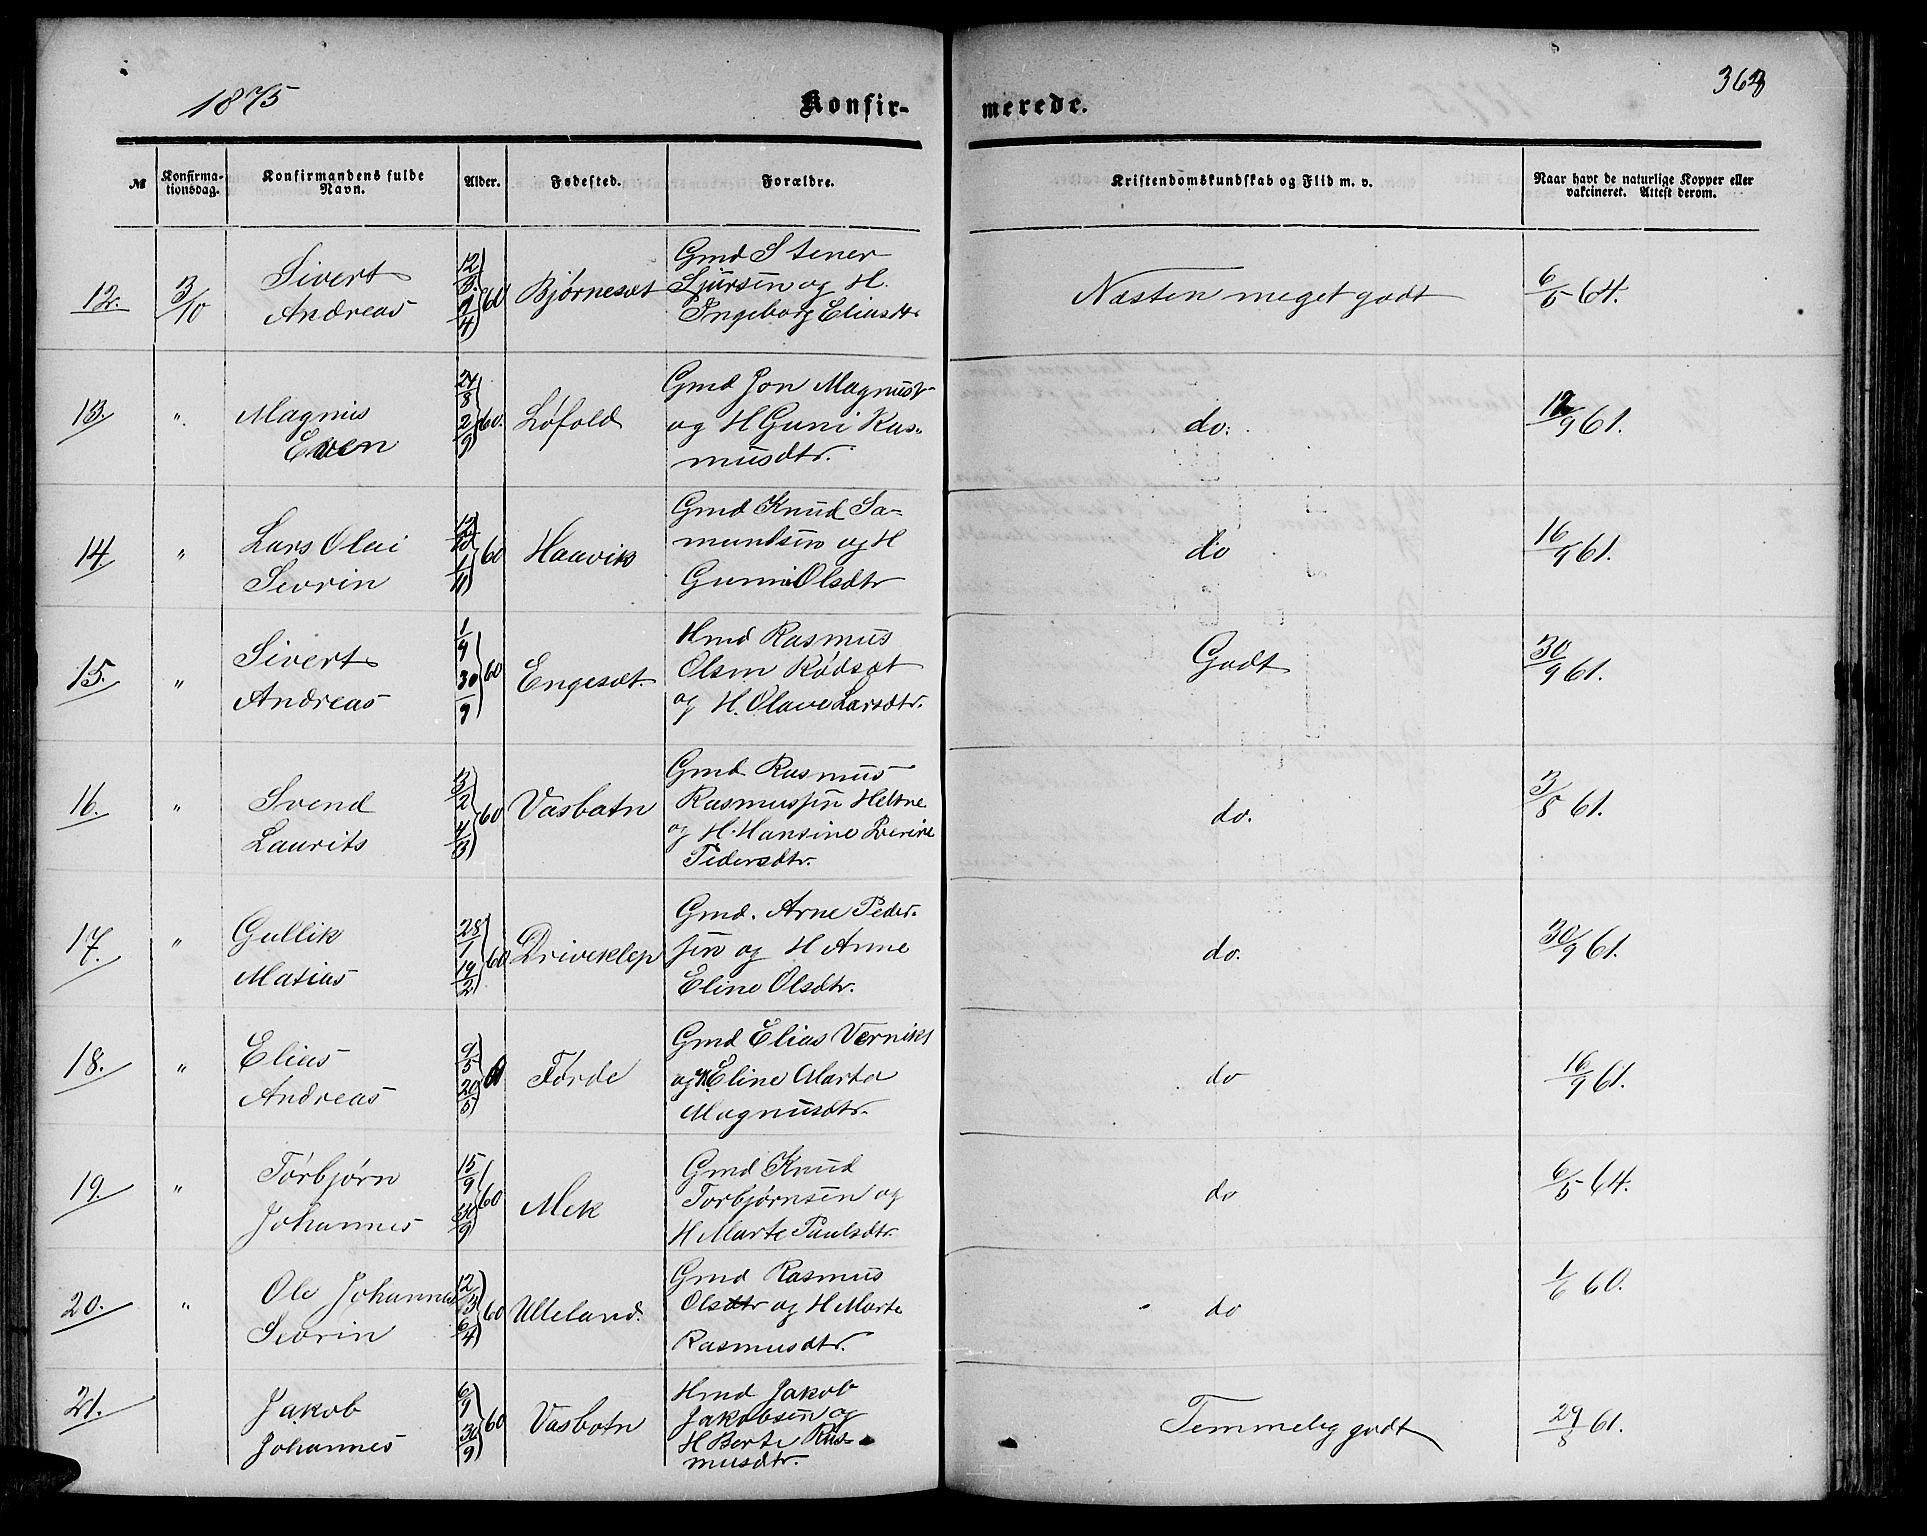 1875
Konfir-
merede.
363
№
Konfirma-
tionsdag.
Konfirmandens fulde
Navn.
Alder.
Fødested.
Forældre.
Kristendomskundskab og Flid m. v.
Naar havt de naturlige Kopper eller
vakcineret. Attest derom.
12. 3/10 Sivert Andreas 12/3 9/4 60 Bjørneset Gmd Stener
Sjursen og H.
Ingeborg Eliasdt. Næsten meget godt 6/5 64.
13. " Magnus Even 24/8 2/9 60. Løfold Gmd Jon Magnus
og H Guni Ras-
musdtr. do. 12/9 61.
14. " Lars Olai Sevrin 12/10 1/11 60 Haavik Gmd Knud Sa-
mundsen og H
Guni Olsdtr do 16/9 61.
15. " Sivert Andreas 1/9 30/9 60 Engeset. Hmd Rasmus
Olsen Rødset
og H. Olave Larsdtr. Godt 30/9 61.
16. " Svend Laurits 3/2 4/3 60 Vasbotn Gmd Rasmus
Rasmussen Heltne
og H. Hansine
Pedersdtr. do. 3/8 61.
17. " Gullik Matias 28/1 19/2 60 Driveklep Gmd. Arne Peder-
sen og H Anne
Eline Olsdtr. do. 30/9 61.
18. " Elias Andreas 9/5 20/5 60 Førde Gmd Elias Verniks
og H. Eline Marta
Magnusdtr. do 16/9 61.
19. " Torbjørn Johannes 15/9 30/9 60 Mek Gmd Knud
Torbjørnsen og
H Marte Paulsdtr. do 6/5 64.
20. " Ole Johannes Sevrin 12/3 6/4 60 Ulleland. Gmd Rasmus
Olsdtr og H Marte
Rasmusdtr. do 1/6 60.
21. Jakob Johannes 6/9 30/9 60 Vasbotn Hmd Jakob
Jakobsen og
H Berte Ras-
musdtr. Temmelig godt 29/8 61.